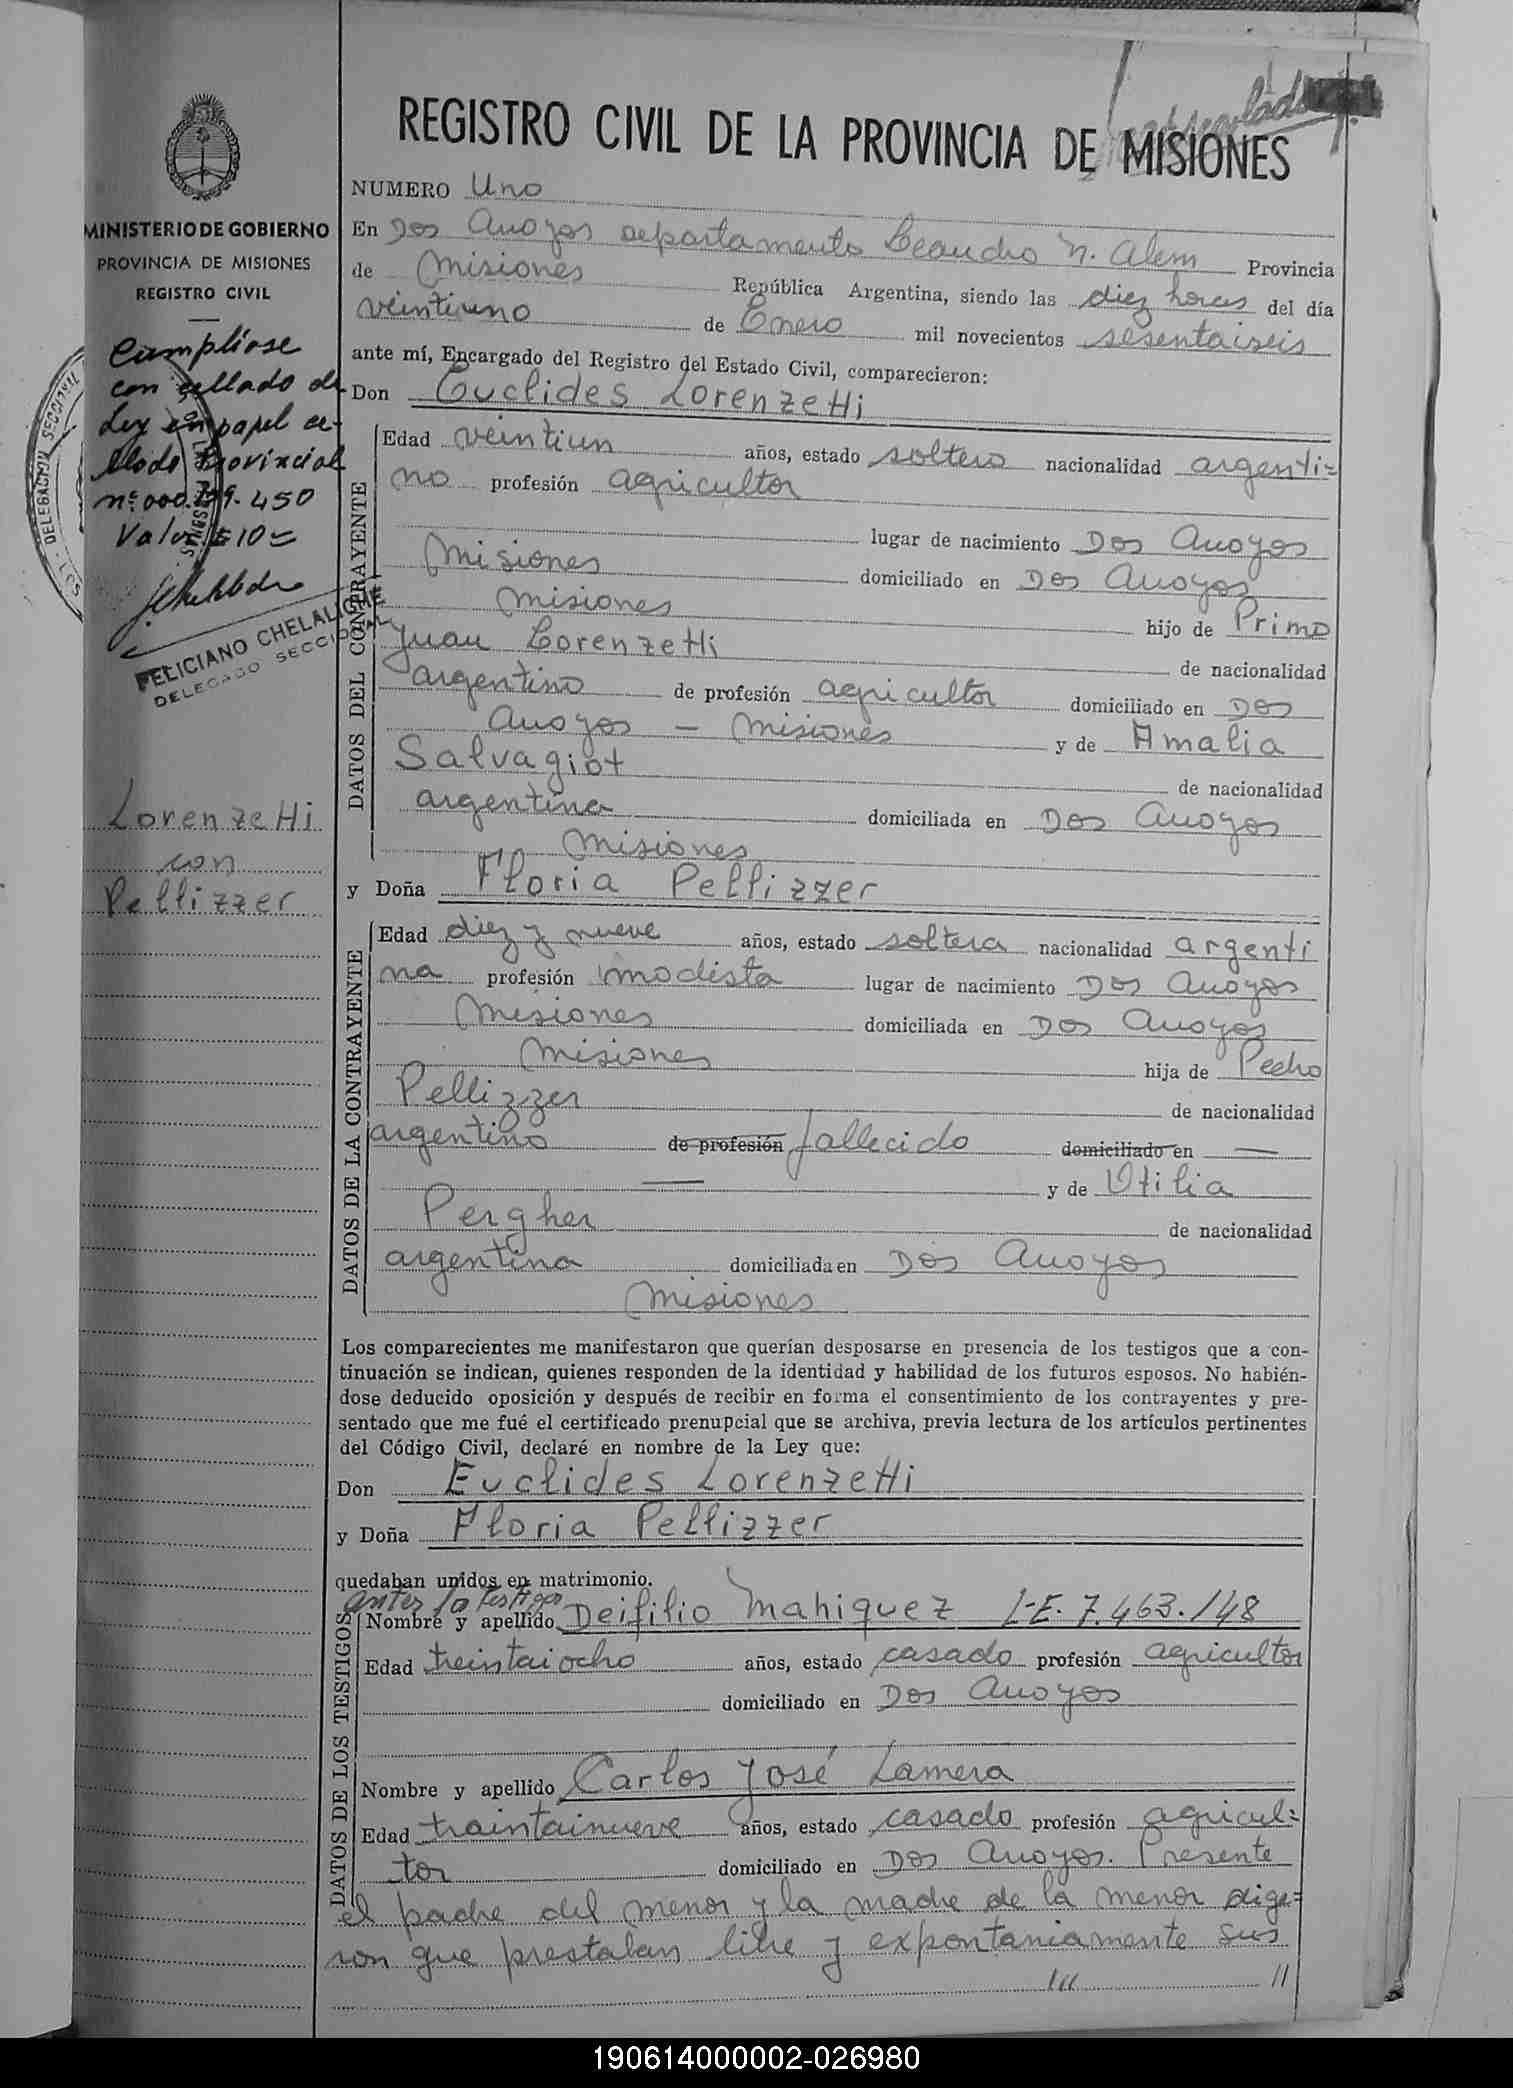 REGISTRO CIVIL DE LA PROVINCIA DE MISIONES
MINISTERIO DE GOBIERNO
PROVINCIA DE MISIONES
REGISTRO CIVIL
Cumpliose
con sellado de
Ley en papel se-
llado Provincial
nº 000.
450
Valor $ 10=
FELICIANO CHELALICHE
DELEGADO SECCIONAL
DELEGACION SECCIONAL
Lorenzetti
con
Pellizzer
NUMERO Uno
En Dos Arroyos departamento Leandro N. Alem Provincia
de Misiones República Argentina, siendo las diez horas del día
veintiuno de Enero mil novecientos sesentaiseis
ante mí, Encargado del Registro del Estado Civil, comparecieron:
Don Euclides Lorenzetti
DATOS DEL CONTRAYENTE
Edad veintiun años, estado soltero nacionalidad argenti=
no profesión agricultor
lugar de nacimiento Dos Arroyos
Misiones domiciliado en Dos Arroyos
Misiones hijo de Primo
Juan Lorenzetti de nacionalidad
argentino de profesión agricultor domiciliado en Dos
Arroyos — Misiones y de Amalia
Salvagiot de nacionalidad
argentina domiciliada en Dos Arroyos
Misiones
y Doña Floria Pellizzer
DATOS DE LA CONTRAYENTE
Edad diez y nueve años, estado soltera nacionalidad argenti
na profesión modista lugar de nacimiento Dos Arroyos
Misiones domiciliada en Dos Arroyos
Misiones hija de Pedro
Pellizzer de nacionalidad
argentino de profesión fallecido domiciliado en —
— y de Otilia
Pergher de nacionalidad
argentina domiciliada en Dos Arroyos
Misiones
Los comparecientes me manifestaron que querían desposarse en presencia de los testigos que a con-
tinuación se indican, quienes responden de la identidad y habilidad de los futuros esposos. No habién-
dose deducido oposición y después de recibir en forma el consentimiento de los contrayentes y pre-
sentado que me fué el certificado prenupcial que se archiva, previa lectura de los artículos pertinentes
del Código Civil, declaré en nombre de la Ley que:
Don Euclides Lorenzetti
y Doña Floria Pellizzer
quedaban unidos en matrimonio.
antes lo testigos
DATOS DE LOS TESTIGOS
Nombre y apellido Deifilio Mahiquez L-E. 7.463.148
Edad treintaiocho años, estado casado profesión agricultor
domiciliado en Dos Arroyos
Nombre y apellido Carlos José Lamera
Edad traintainueve años, estado casado profesión agricul=
tor domiciliado en Dos Arroyos. Presente
el padre del menor y la madre de la menor dige=
ron que prestaban libre y expontaniamente sus
/// //
190614000002-026980